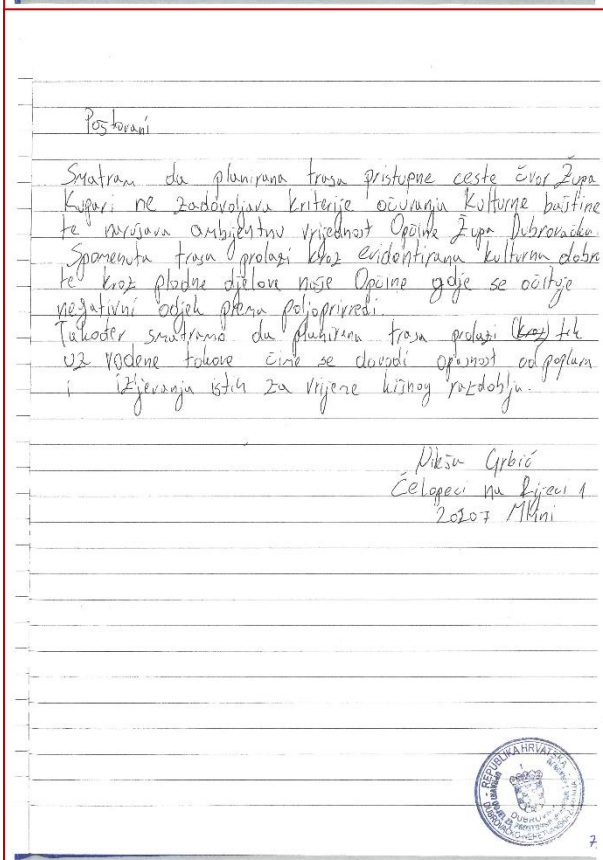 Poštovani
Smatram da planirana trasa pristupne ceste čvor Župa
Kupari ne zadovoljava kriterije očuvanja kulturne baštine
te narušava ambijentnu vrijednost Općine Župa Dubrovačka.
Spomenuta trasa prolazi kroz evidentirana kulturna dobra
te kroz plodne djelove naše Općine gdje se očituje
negativni odjek prema poljoprivredi.
Također smatramo da planirana trasa prolazi (kroz) tik
uz vodene tokove čime se dovodi opasnost od poplava
i izljevanja istih za vrijeme kišnog razdoblja.
Nikša Grbić
Čelopeci na Rijeci 1
20207 Mlini
REPUBLIKA HRVATSKA
DUBROVAČKO-NERETVANSKA
7